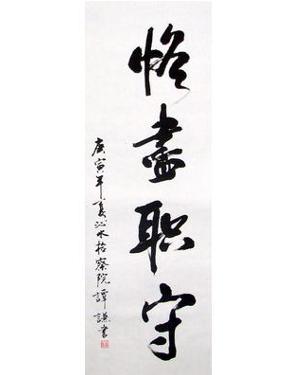 恪盡职守
庚寅年夏沁水检察院譚謙書